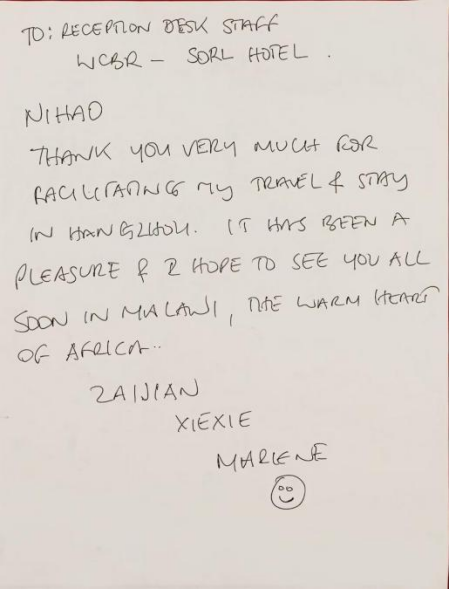 TO: RECEPTION DESK STAFF
WCBR – SORL HOTEL .
NIHAO
THANK YOU VERY MUCH FOR
FACILITATING MY TRAVEL & STAY
IN HANGZHOU. IT HAS BEEN A
PLEASURE & I HOPE TO SEE YOU ALL
SOON IN MALAWI, THE WARM HEART
OF AFRICA..
ZAIJIAN
XIEXIE
MARLENE